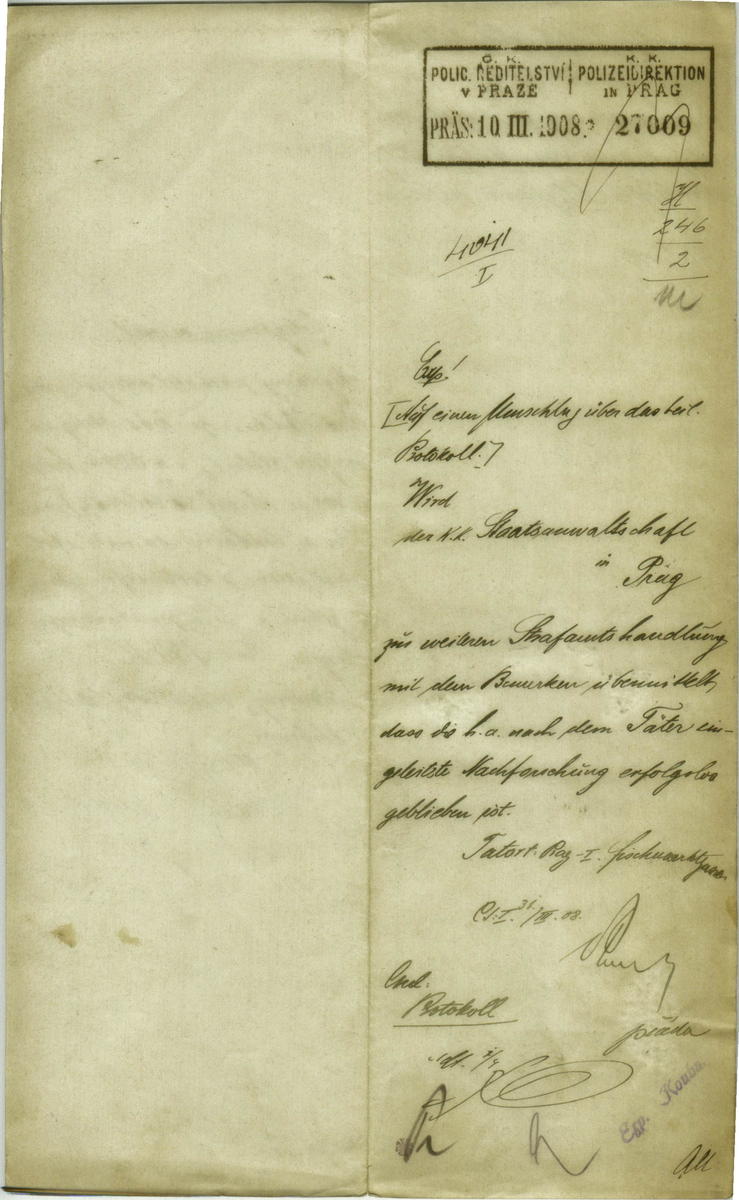 C. K. K. K.
POLIC. ŘEDITELSTVÍ POLIZEIDIREKTION
V PRAZE IN PRAG
PRÄS: 10. III. 1908. 27009
H
246
2
4041
I
Exp!
[Auf einen Umschlag über das beil.
Protokoll.]
Wird
der K.k. Staatsanwaltschaft
in
Prag
zur weiteren Strafamtshandlung
mit dem Bemerken übermittelt,
dass die h.a. nach dem Täter ein-
geleitete Nachforschung erfolglos
geblieben ist.
Tatort: Prag-I. Fischmarktgasse
31/III. 08.
Protokoll
Exp. Kouba